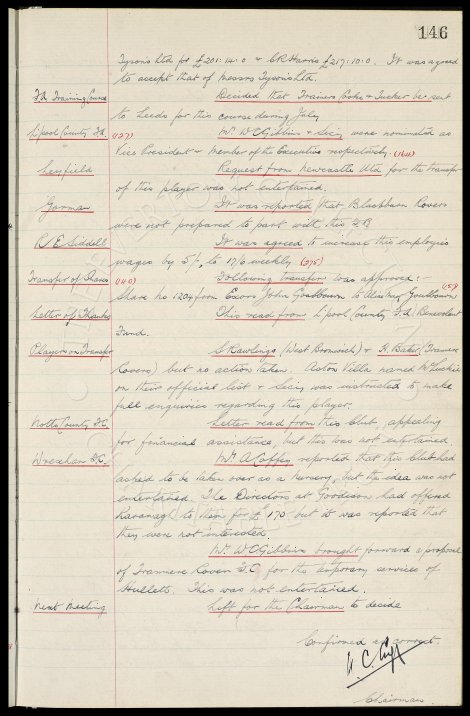 146
Tysons Ltd for £201:14:0 & C.R. Harris £217:10:0. It was agreed
to accept that of Messrs Tysons Ltd.
F.A. Training Course Decided that Trainers Cooke & Tucker be sent
to Leeds for this course during July
L'pool County F.A. (127) Mr. W.C. Gibbins & Secy were nominated as
Vice President & Member of the Executive respectively. (164)
Leyfield Request from Newcastle Utd for the transfer
of this player was not entertained.
Gorman It was reported that Blackburn Rovers
were not prepared to part with this F.B
R.E. Siddell It was agreed to increase this employees
wages by 5/- to 17/6 weekly (275)
Transfer of Shares (140) Following transfer was approved:- (159)
Share No 1204 from Exors John Goulbourn to Alastair Goulbourn
Letter of Thanks This read from L'pool County F.A. Benevolent
Fund.
Players on Transfer S. Rawlings (West Bromwich) & H. Baker (Tranmere
Rovers) but no action taken. Aston Villa named McLuckie
on their official list & Secy was instructed to make
full enquiries regarding this player.
Notts County F.C. Letter read from this Club, appealing
for financial assistance, but this was not entertained.
Wrexham F.C. Mr. A. Coffey reported that this Club had
asked to be taken over as a nursery, but the idea was not
entertained. The Directors at Goodison had offered
Kavanagh to them for £170 but it was reported that
they were not interested.
Mr. W.C. Gibbins brought forward a proposal
of Tranmere Rovers F.C. for the temporary services of
Hullett. This was not entertained.
Next Meeting Left for the Chairman to decide
Confirmed as correct.
W. C. Cuff
Chairman